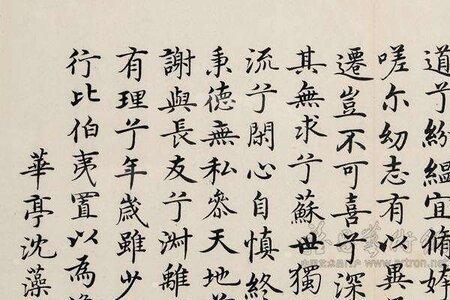 道兮紛緼宜脩姱
嗟尒幼志有以異
遷豈不可喜兮深
其無求兮蘇世獨
流兮閉心自慎終
秉德無私參天地
謝與長友兮淑離
有理兮年歲雖少
行比伯夷置以為
華亭沈藻